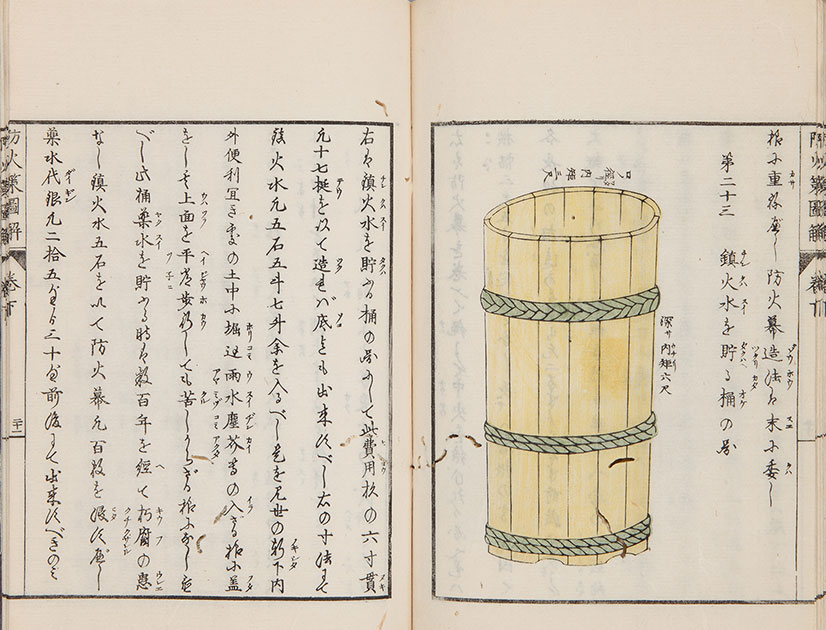 様に重ぬべし防火幕造法は末に委し
第二十三 鎮火水を貯る桶の図
口ノ径リ内矩三尺
深サ内矩六尺
防火薬圖解 巻下
右は鎮火水を貯ふる桶の図にして此費用杉の六寸貫
凡十七挺を以て造れば底とも出来すべし右の寸法にて
鎮火水凡五石五斗七升余を入るべし是を凡世の軒下内
外便利宜き処の土中に堀込雨水塵芥等の入ざる様に蓋
をし其上面を平常歩行しても苦しからざる様になし置
べし此桶薬水を貯ふる時は数百年を経て朽腐の患
なし鎮火水五石を以て防火幕凡百枚を浸すべし
薬水代銀凡二拾五匁より三十匁前後にて出来すべきのみ
防火薬圖解 巻下 二十一